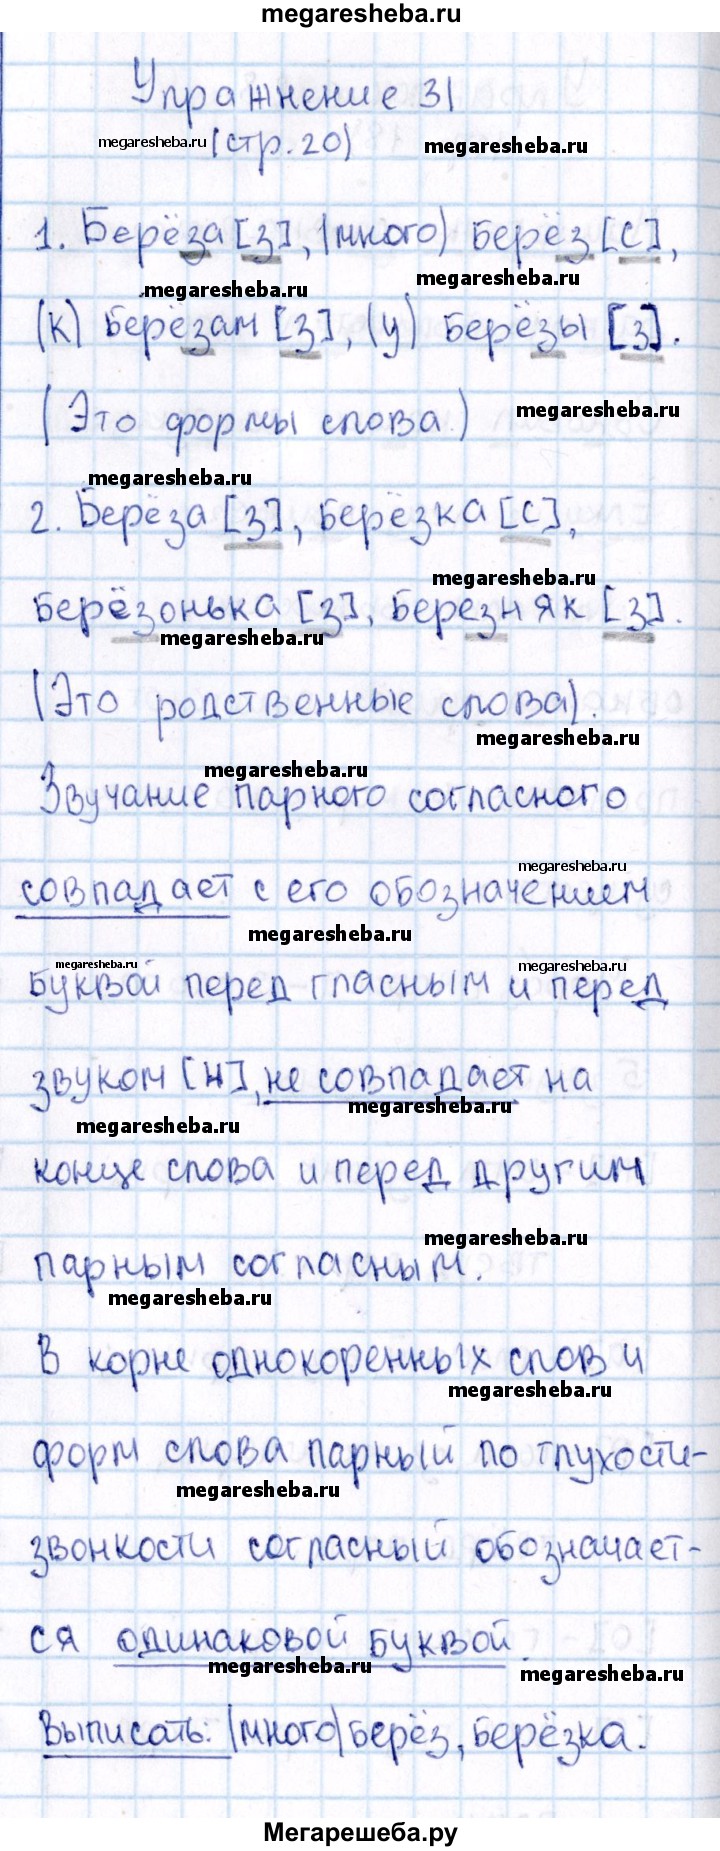 megaresheba.ru
Упражнение 31
megaresheba.ru (стр. 20) megaresheba.ru
1. Берёза [з], (много) берёз [с],
megaresheba.ru megaresheba.ru
(к) берёзам [з], (у) берёзы [з].
(Это формы слова.) megaresheba.ru
megaresheba.ru
2. Берёза [з], берёзка [с],
megaresheba.ru
берёзонька [з], березняк [з].
megaresheba.ru
(Это родственные слова).
megaresheba.ru
megaresheba.ru
Звучание парного согласного
megaresheba.ru
совпадает с его обозначением
megaresheba.ru
megaresheba.ru megaresheba.ru
буквой перед гласным и перед
звуком [н], не совпадает на
megaresheba.ru
megaresheba.ru
конце слова и перед другим
megaresheba.ru
парным согласным.
megaresheba.ru
В корне однокоренных слов и
megaresheba.ru
форм слова парный по глухости-
megaresheba.ru
звонкости согласный обозначает-
ся одинаковой буквой.
megaresheba.ru megaresheba.ru
Выписать: (много) берёз, берёзка.
Мегарешеба.ру